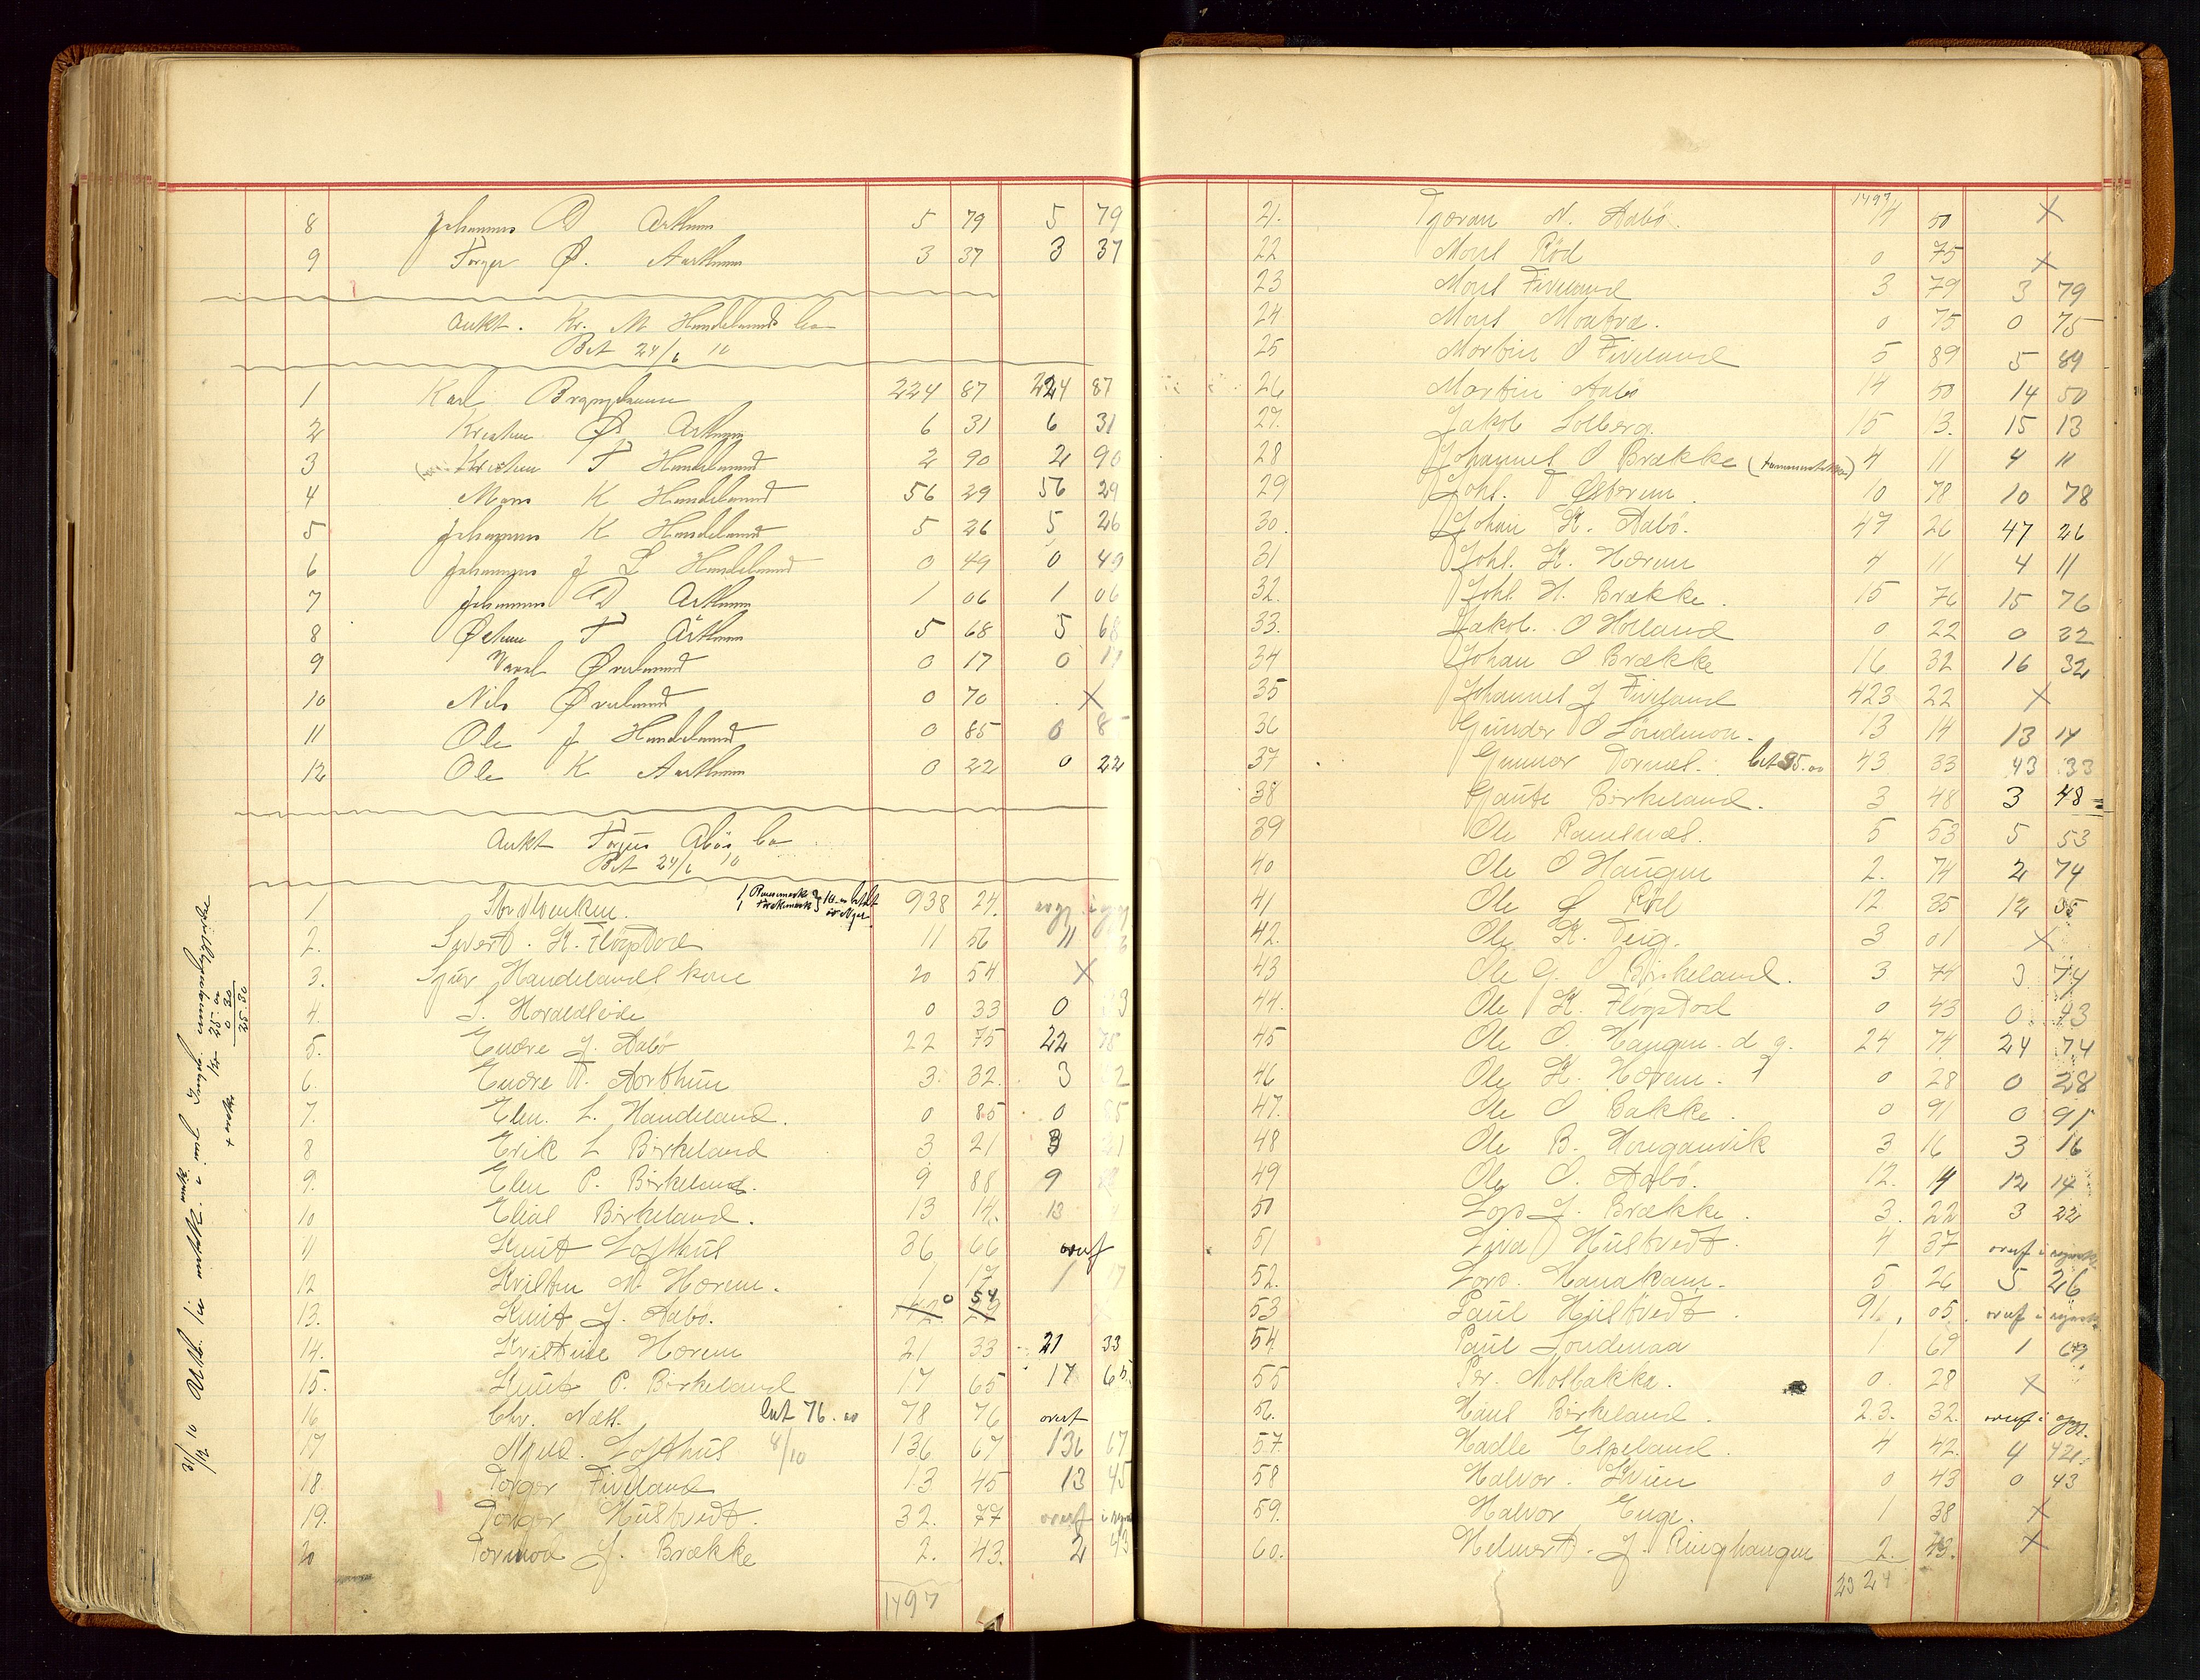 8 Johannes D Arthun 5 79 5 79
9 Torger Ø. Aarthun 3 37 3 37
Aukt. Kr. M Handelands bo
Bet 24/6 10
1 Karl Brynjelsen 224 87 224 87
2 Kristen Ø Arthun 6 31 6 31
3 Kristen T Handeland 2 90 2 90
4 Mons K Handeland 56 29 56 29
5 Johannes K Handeland 5 26 5 26
6 Johannes J L Handeland 0 49 0 49
7 Johannes D Arthun 1 06 1 06
8 Østen T Arthun 5 68 5 68
9 Øvreland 0 17 0 17
10 Nils Øvreland 0 70 X
11 Ole J Handeland 0 85 0 85
12 Ole K Aarthun 0 22 0 22
Aukt Tørjus Abös bo
Bet 24/6 10
1 938 24
2. Sivert. K. Flogstad 11 56 11
3. Sjur Handelands kone 20 54 X
4. S. Hordaleide 0 33 0 33
5. Endre J. Aabö 22 75 22 75
6. Endre T. Aarthun 3. 32. 3 32
7. Elen. L. Handeland. 0 85 0 85
8 Erik L Birkeland 3 21 3 21
9. Elen P. Birkeland. 9 88 9 88
10 Elias Birkeland. 13 14. 13
11 Knut Lofthus 36 66 overf
12 Kristen N Horem. 1 17 1 17
13. Knut J. Aabö. 0 54
14. Kristine Horem 21 33 21 33
15. Knut P. Birkeland 17 65 17 65
16 Chr. Næs. bet 76.00 78 76 overf
17 Lofthus 8/10 136 67 136 67
18. Torger Fiveland 13 45 13 45
19. Torger Hustvedt. 32. 77 overf i
20 Tormod J. Brække 2. 43. 2 43
1497
1497
21. Tjeran N. Aabö. 14 50 X
22 Mons Röd 0 75 X
23 Mons Fiveland 3 79 3 79
24 Mons 0 75 0 75
25 Martin O Fiveland 5 89 5 89
26 Martin Aabö 14 50 14 50
27. Jakob Solberg. 15 13. 15 13
28 Johannes O Brække 4 11 4 11
29 Johs. T Österem. 10 78 10 78
30. Johan K. Aabö. 47 26 47 26
31 Johs. K. Horem 4 11 4 11
32. Johs. H. Brække. 15 76 15 76
33. Jakob. O Hölland 0 22 0 22
34 Johan O Brække 16 32 16 32
35 Johannes J Fiveland 423 22 X
36 Gunder O Löndenon. 13 14 13 14
37 Gunnar Tormod. 43 33 43 33
38 Gaute Birkeland. 3 48 3 48
39 Ole Ramsnæs. 5 53 5 53
40 Ole O Haugen 2. 74 2 74
41 Ole L Röd 12. 35 12 35
42. Ole K. Teig. 3 01 X
43 Ole G. O Birkeland. 3 74 3 74
44. Ole K. Flogstad 0 43 0 43
45 Ole O. Haugen. d. y. 24 74 24 74
46 Ole K. Horem. 0 28 0 28
47. Ole O Bakke. 0 91 0 91
48 Ole B. Honganvik 3 16 3 16
49 Ole O. Aabö. 12. 14 12 14
50 Lars J. Brække. 3. 22 3 22
51 Liva Hustvedt. 4 37 overf i
52. Lars. Hanakam. 5 26 5 26
53 Paul Hustvedt. 91. 05. overf i
54. Paul Londenaa 1 69 1 69
55 Per. Mosbakka. 0. 28 X
56. Hans Birkeland. 23. 32. overf i
57. Hadle Espeland. 4 42. 4 42
58 Halvor. Kvien 0 43 0 43
59. Halvor Enge. 1 38 X
60. Helmert. J. Ringhaugen 2. 43. X
2324